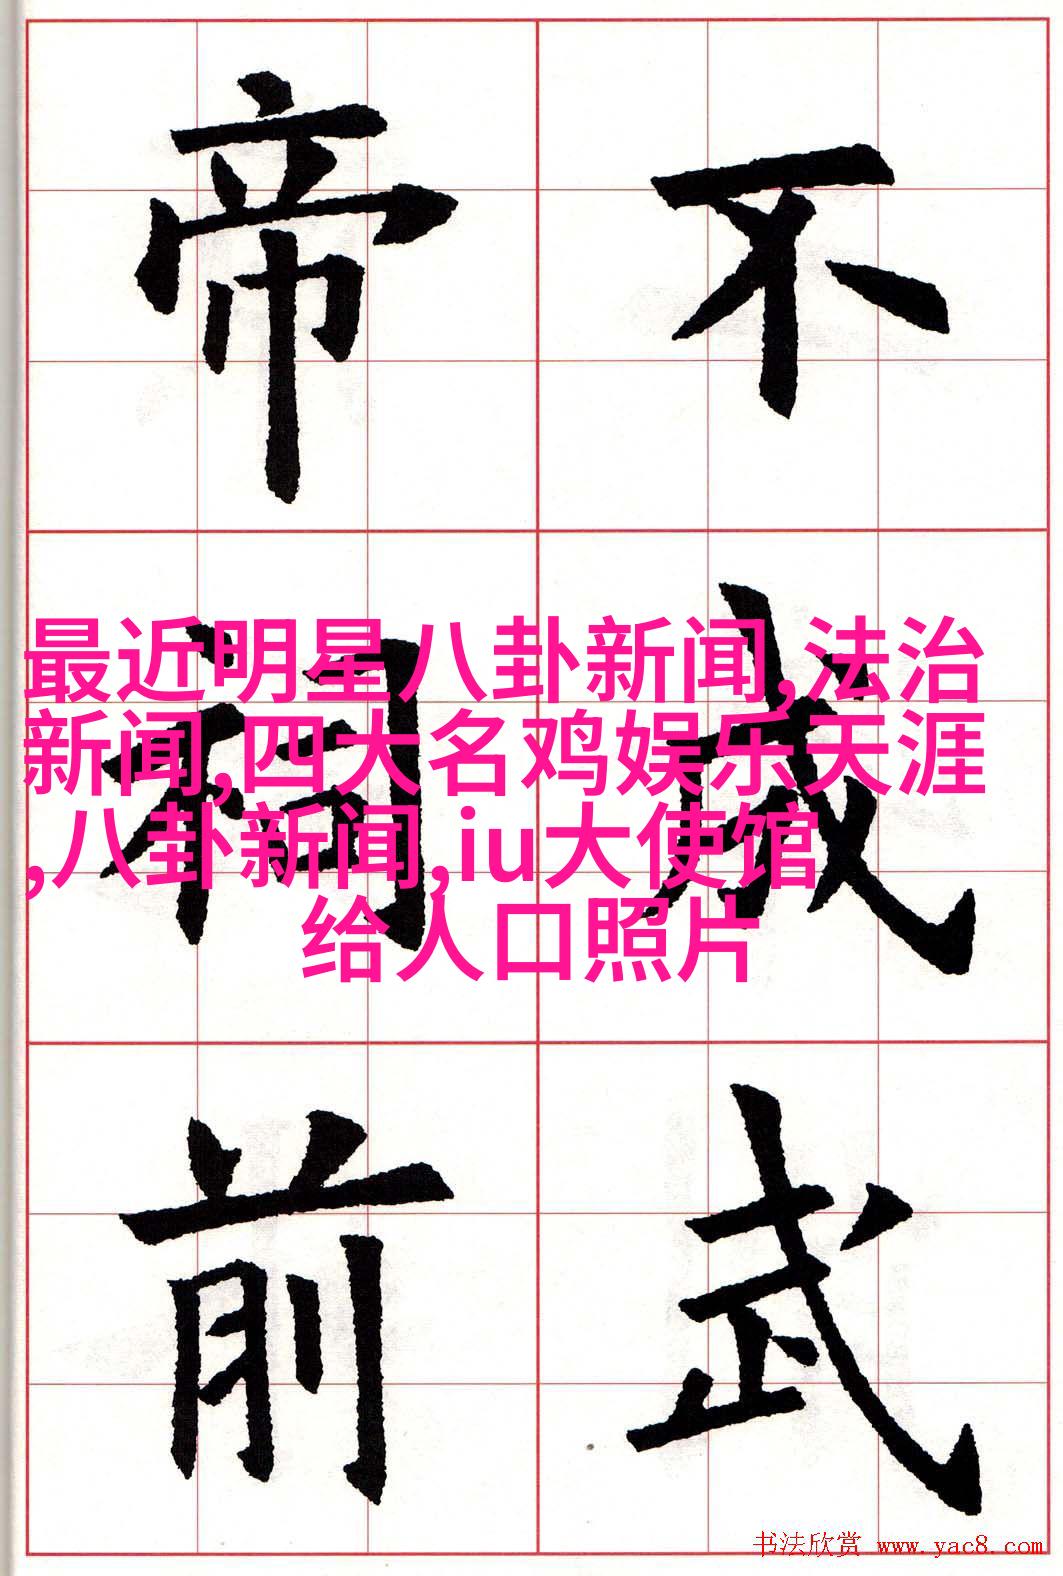 帝不
祠成
前武
最近明星八卦新闻,法治
新闻,四大名鸡娱乐天涯
,八卦新闻,iu大使馆
给人口照片
书法欣赏 www.yac8.com